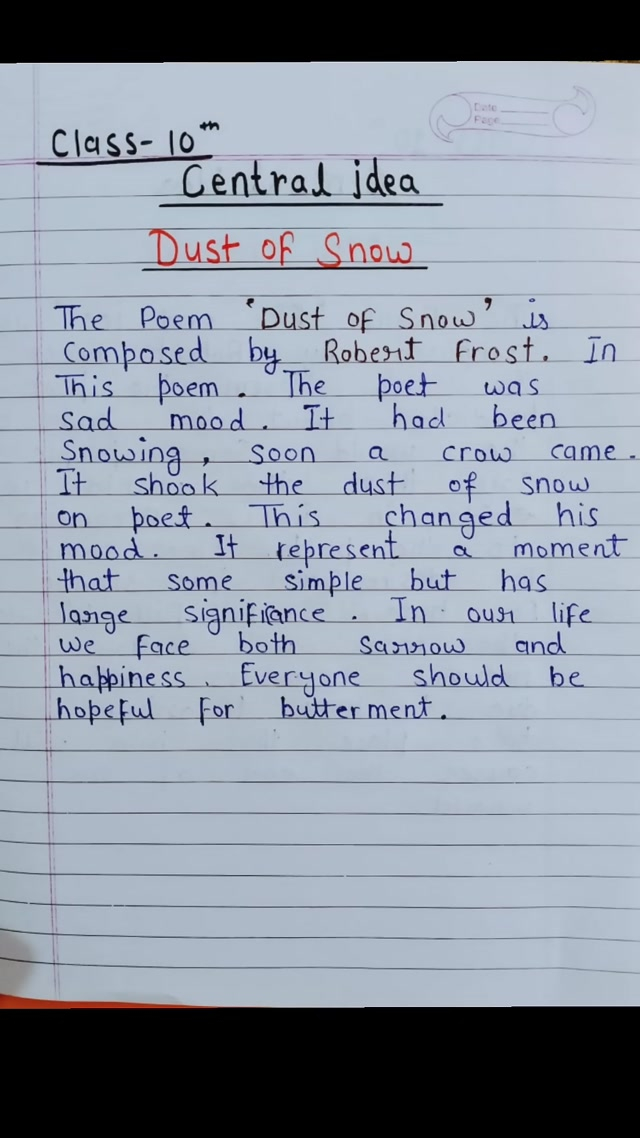 Date
Page
Class- 10th
Central idea
Dust of Snow
The Poem 'Dust of Snow' is
Composed by Robert Frost. In
This poem. The poet was
sad mood. It had been
Snowing, soon a crow came.
It shook the dust of snow
on poet. This changed his
mood. It represent a moment
that some simple but has
large significance. In our life
we face both sarrow and
happiness. Everyone should be
hopeful for butterment.